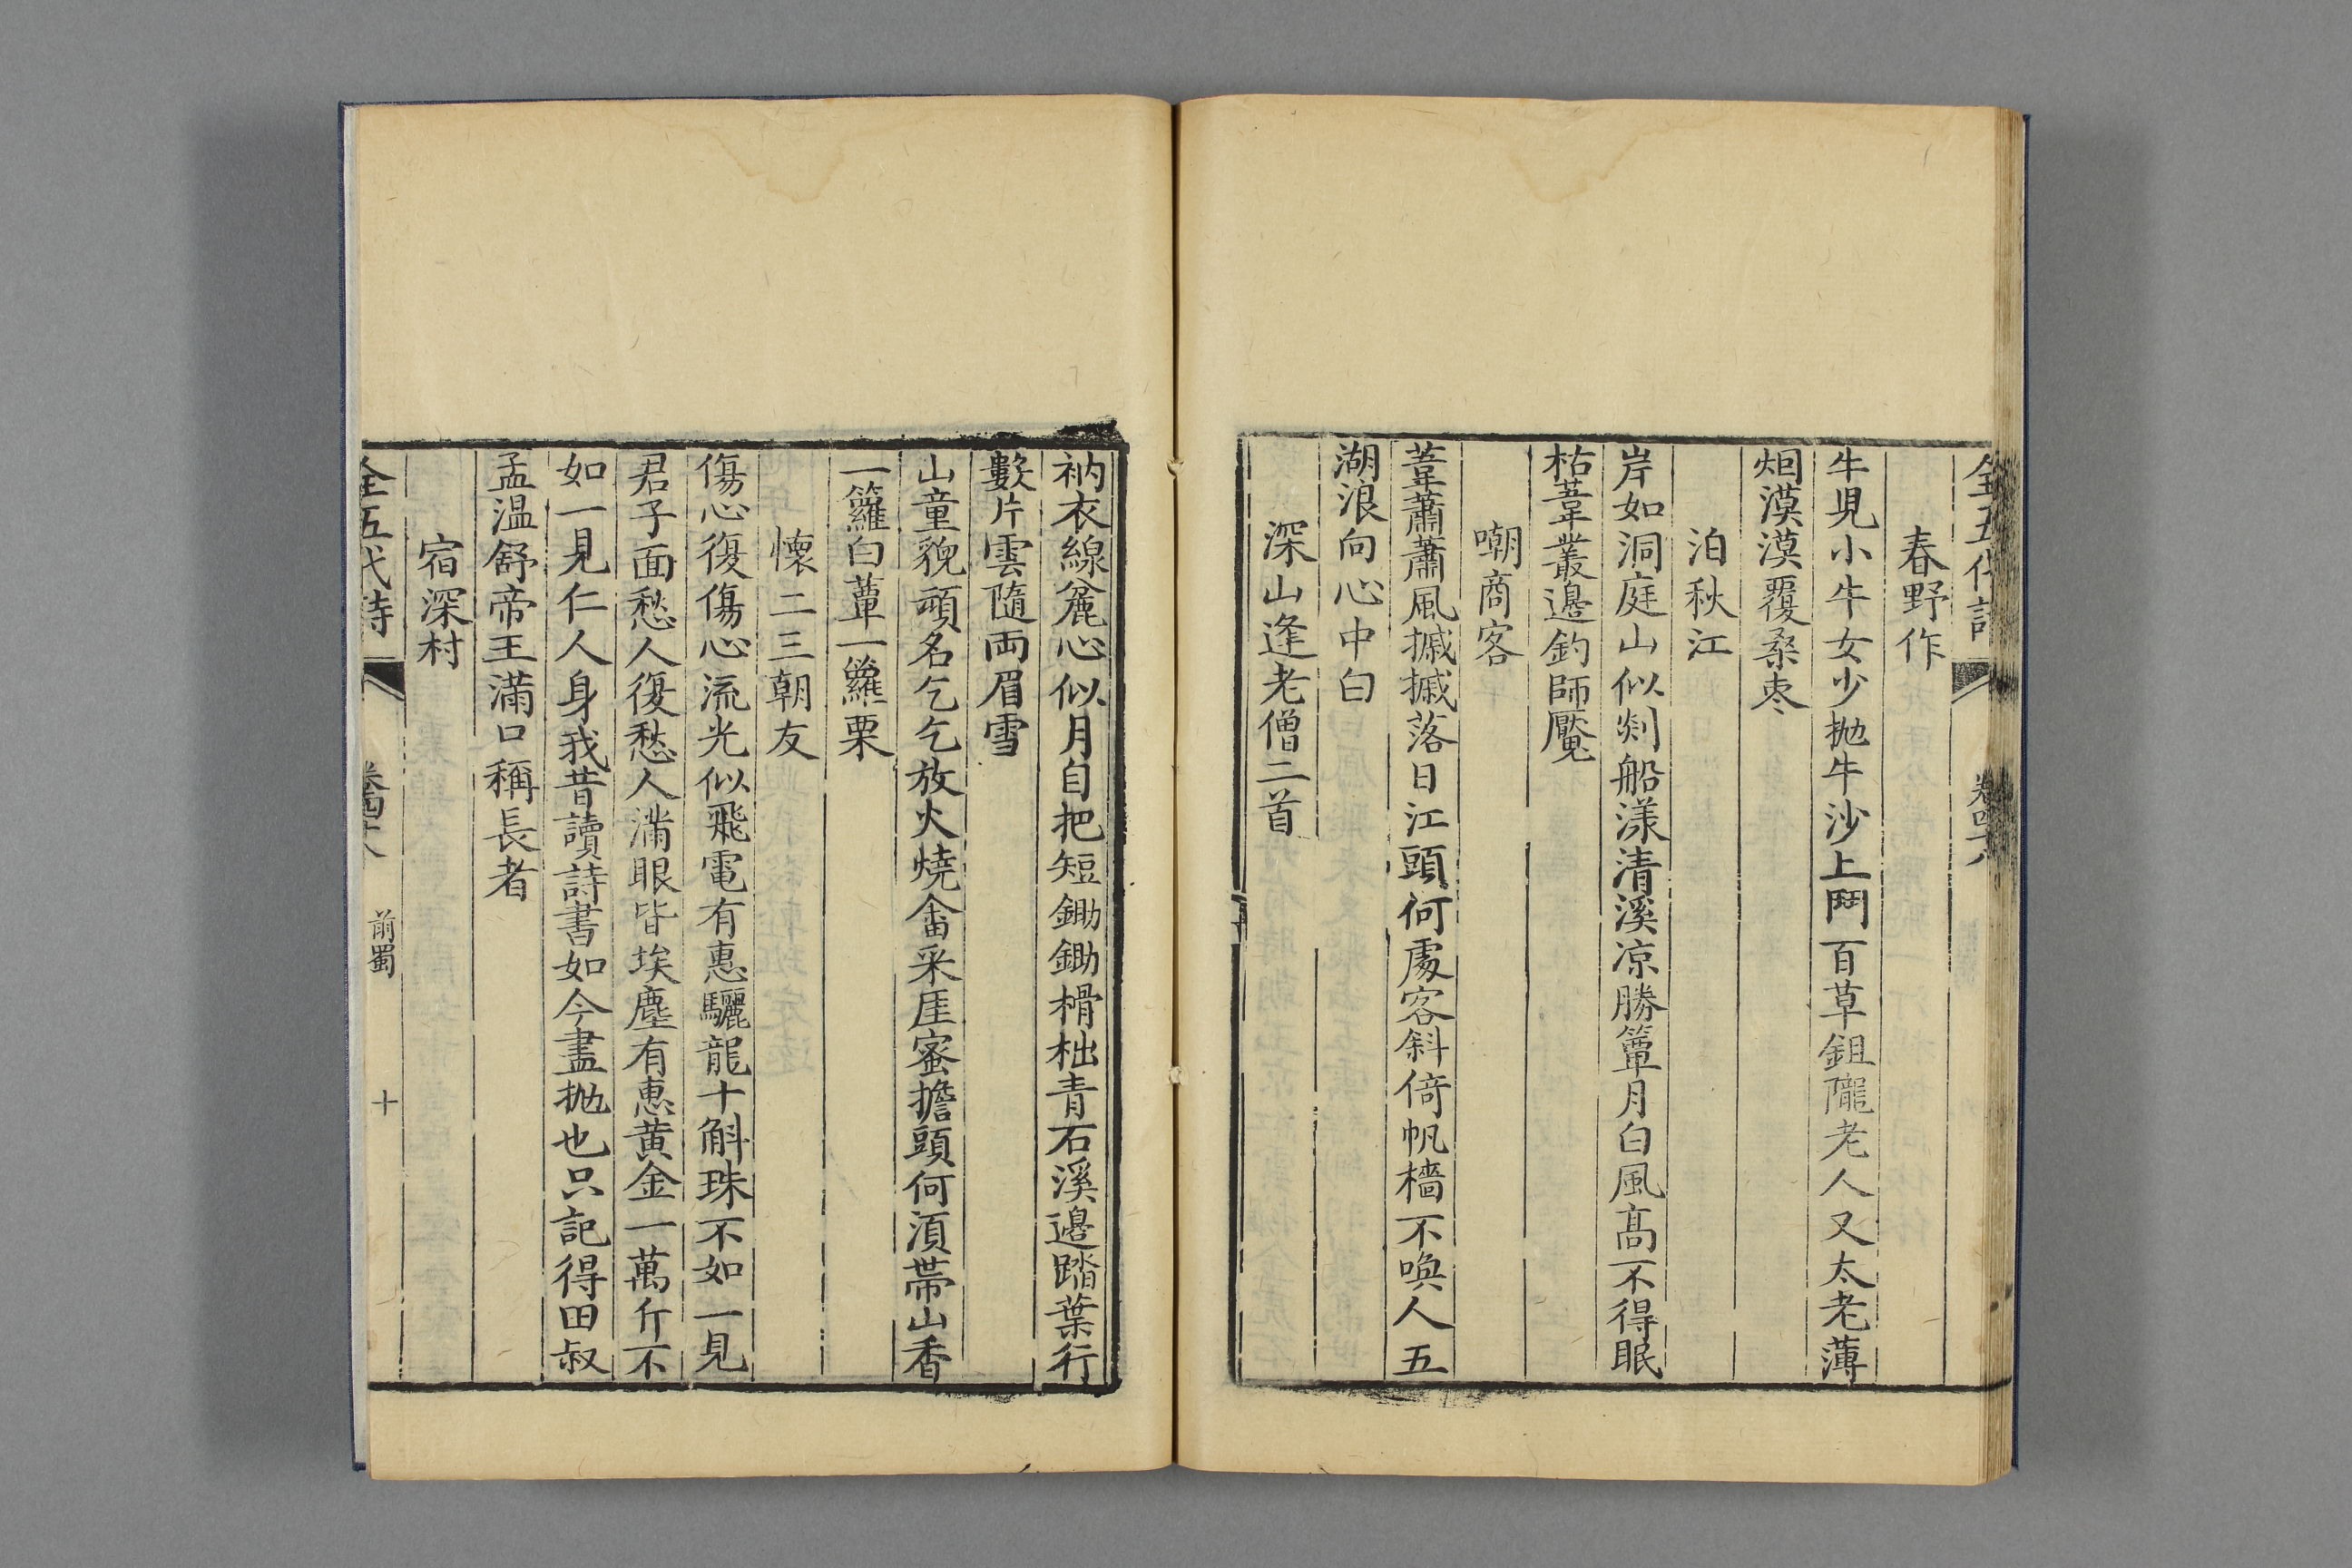 全五代詩
卷四十八
春野作
牛兒小牛女少拋牛沙上鬭百草鉏隴老人又太老薄
烟漠漠覆桑棗
泊秋江
岸如洞庭山似剡船漾清溪凉勝簟月白風高不得眠
枯葦叢邊釣師魘
嘲商客
葦蕭蕭風摵摵落日江頭何處客斜倚帆檣不喚人五
湖浪向心中白
深山逢老僧二首
衲衣線麄心似月自把短鋤鋤榾柮青石溪邊踏葉行
數片雲隨兩眉雪
山童貌頑名乞乞放火燒畬采厓蜜擔頭何湏帶山香
一籮白蕈一籮栗
懷二三朝友
傷心復傷心流光似飛電有惠驪龍十斛珠不如一見
君子面愁人復愁人滿眼皆埃塵有惠黄金一萬斤不
如一見仁人身我昔讀詩書如今盡拋也只記得田叔
孟温舒帝王滿口稱長者
宿深村
全五代詩
卷四十八
前蜀
十